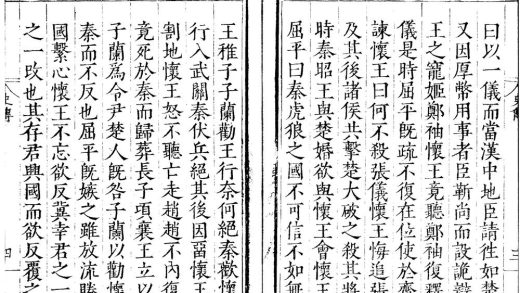 曰以一儀而當漢中地臣請往如楚
又因厚幣用事者臣靳尚而設詭辯
王之寵姬鄭袖懷王竟聽鄭袖復釋
儀是時屈平旣疏不復在位使於齊
諫懷王曰何不殺張儀懷王悔追張
及其後諸侯共擊楚大破之殺其將
時秦昭王與楚婚欲與懷王會懷王
屈平曰秦虎狼之國不可信不如無
王稚子子蘭勸王行奈何絕秦歡懷
行入武關秦伏兵絕其後因畱懷王
割地懷王怒不聽亡走趙趙不內復
竟死於秦而歸葬長子頃襄王立以
子蘭爲令尹楚人旣咎子蘭以勸懷
秦而不反也屈平旣嫉之雖放流睠
國繫心懷王不忘欲反冀幸君之一
之一改也其存君興國而欲反覆之
四